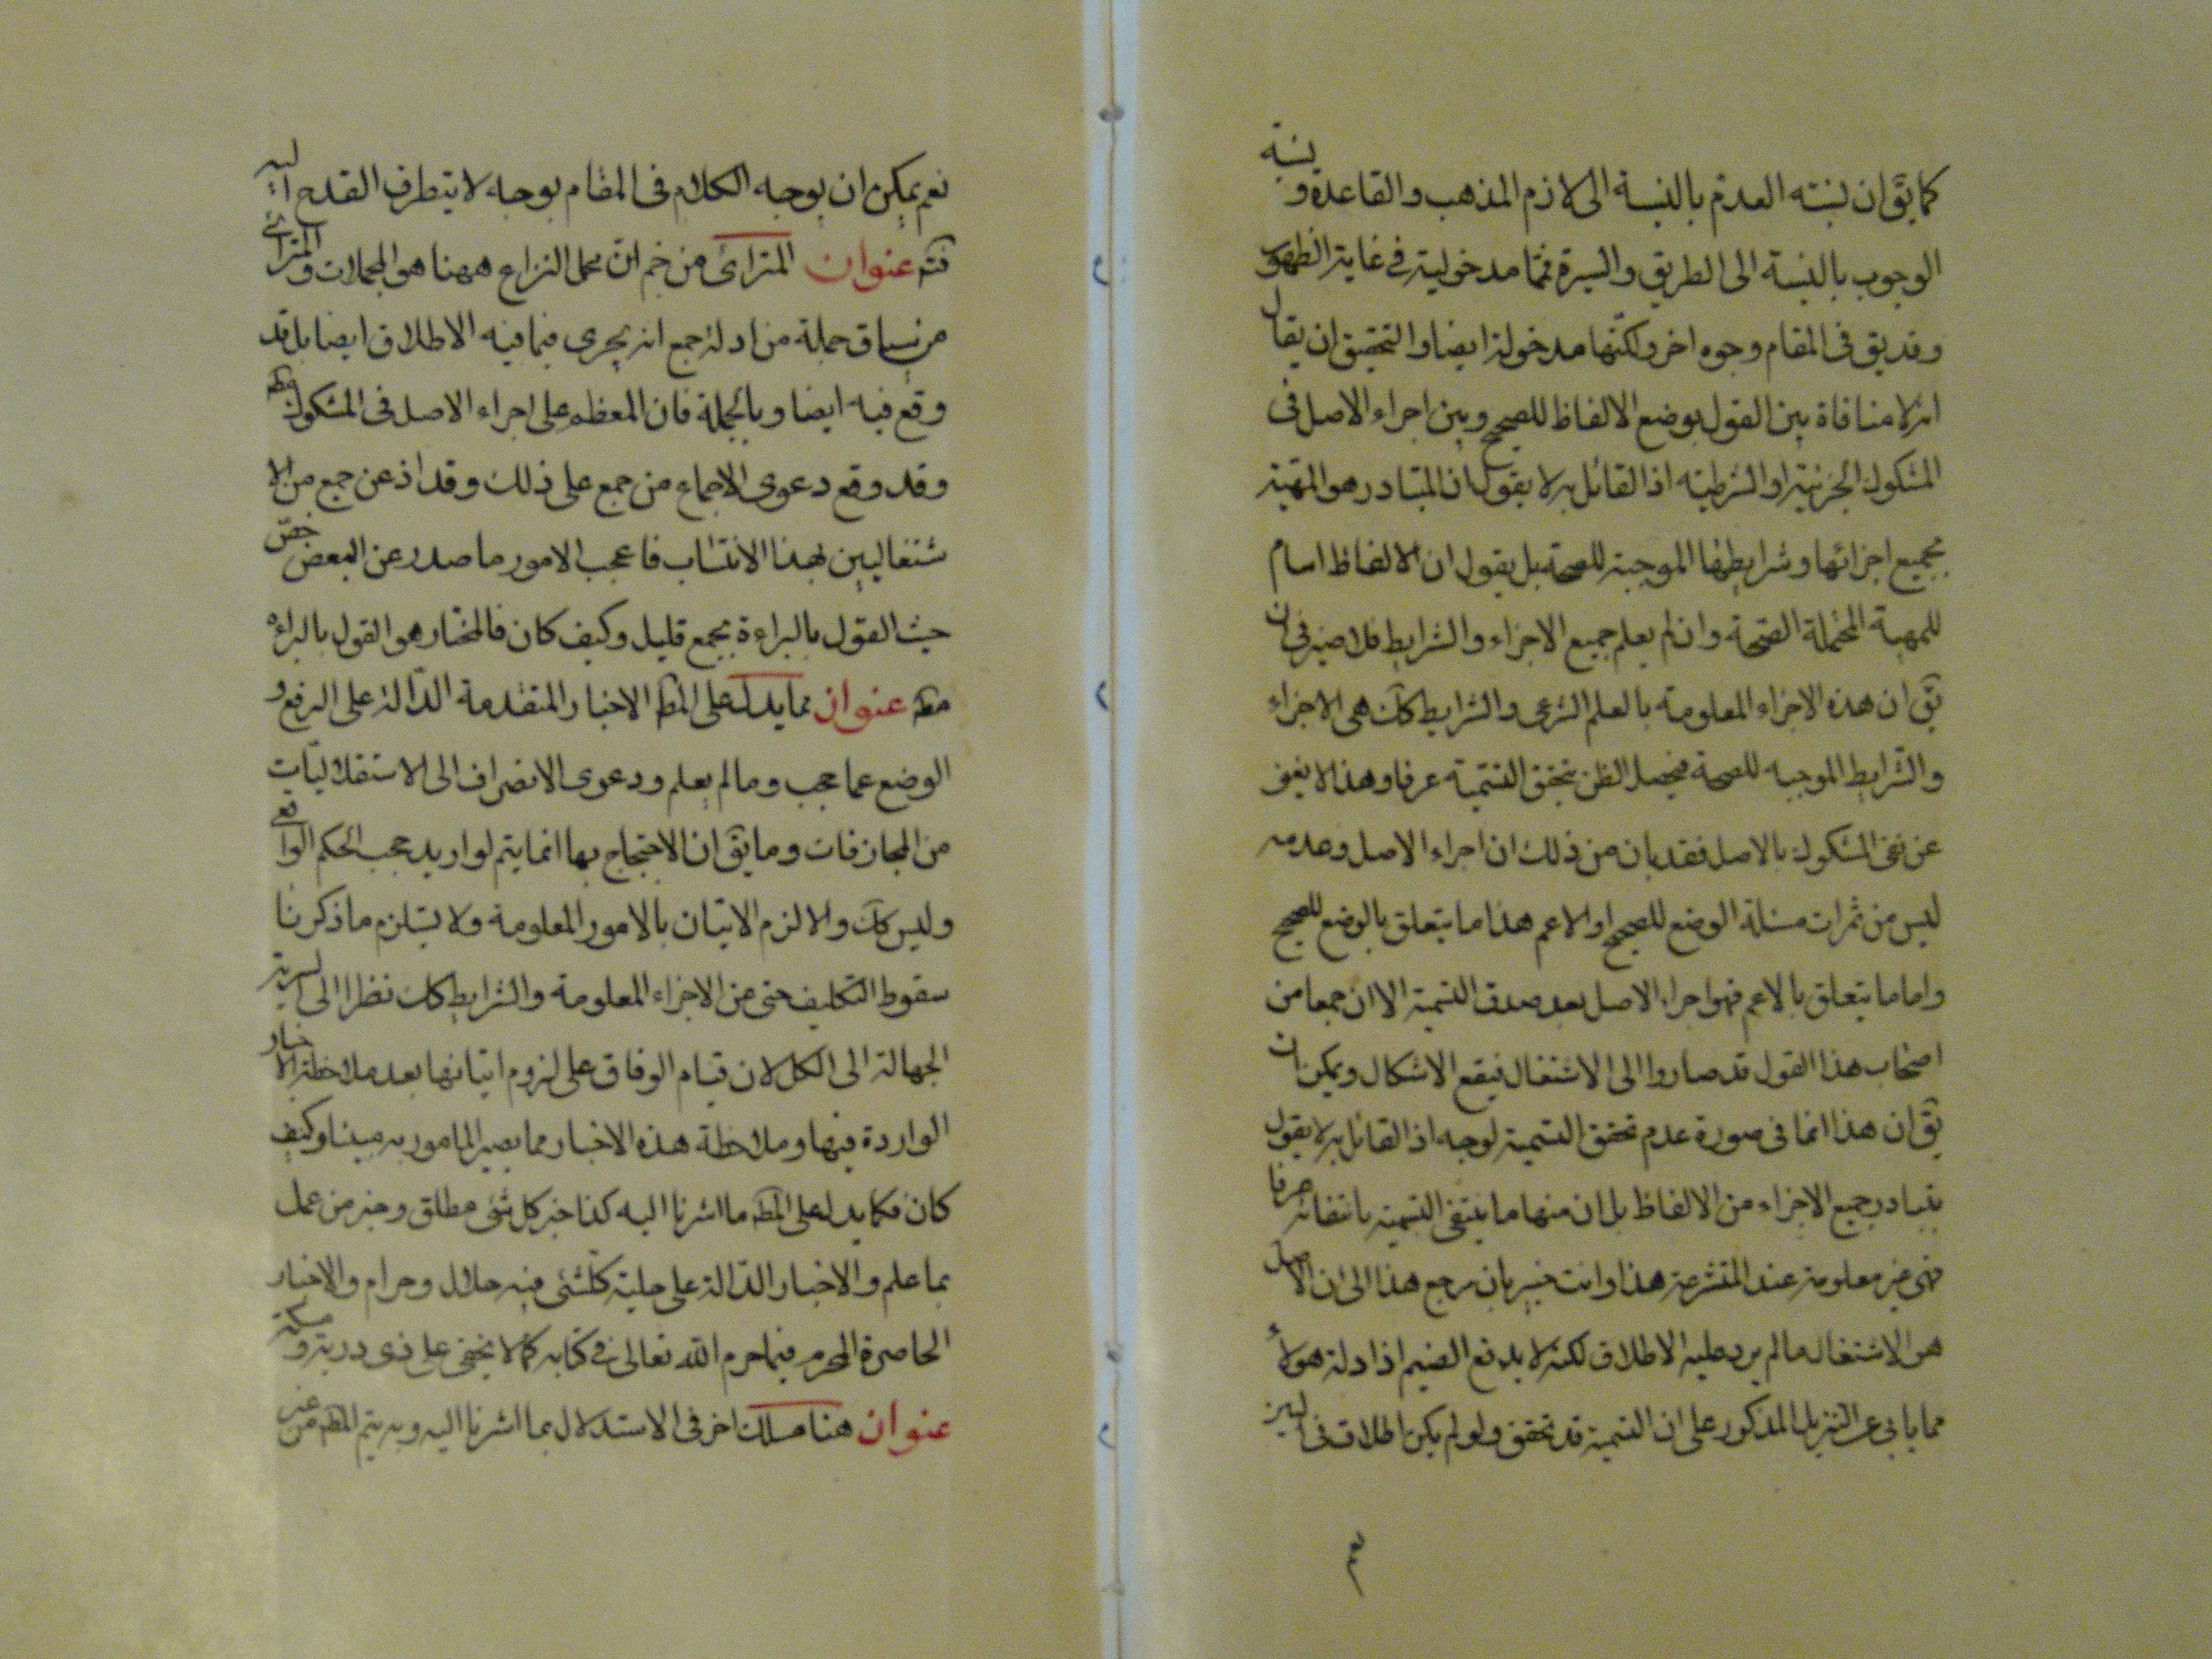 كما يقّ ان نسبته العدم بالنسبة الى لازم المذهب والقاعدة ونسبة
الوجوب بالنسبة الى الطريق والسيرة فمما مدخوليته فى غاية الظهور
وقد يق فى المقام وجوه اخر ولكنّها مدخولة ايضا والتحقيق ان يقال
انه لا منافاة بين القول بوضع الالفاظ للصحيح وبين اجراء الاصل فى
المشكوك الجزئية او الشرطيّه اذ القائل به لا يقول ان المتبادر هو المهيّة
بجميع اجزائها وشرايطها الموجبة للصحة بل يقول ان الالفاظ اسام
للمهية المحتملة الصّحة وان لم يعلم جميع الاجزاء والشرايط فلا ضير فى ان
يقّ ان هذه الاجزاء المعلومة بالعلم الشرعى والشرايط كك هى الاجزاء
والشّرايط الموجبه للصحة فيحصل الظن بتحقق التسمية عرفا وهذا لا يغنى
عن نفى المشكوك بالاصل فقد بان من ذلك ان اجراء الاصل وعدمه
ليس من ثمرات مسئلة الوضع للصحيح او الاعم هذا ما يتعلق بالوضع للصحيح
واما ما يتعلق بالاعم فهو اجراء الاصل بعد صدق التسمية الا ان جمعا من
اصحاب هذا القول قد صاروا الى الاشتغال فيقع الاشكال ويمكن ان
يقّ ان هذا انما فى صورة عدم تحقق التسمية لوجه اذ القائل به لا يقول
بتبادر جميع الاجزاء من الالفاظ بل ان منها ما ينتفى التسمية بانتفائه عرفا
فهى غير معلومة عند المتشرعة هذا وانت خبير بان مرجع هذا الى ان الاصل
هو الاشتغال ما لم يرد عليه الاطلاق لكنه لا يدفع الضيم اذ ادلة هولاء
مما يابى عن التنزيل المذكور على ان التسمية قد تحقق ولو لم يكن اطلاق فى البين
نعم يمكن ان يوجه الكلام فى المقام بوجه لا يتطرق القدح اليه
فتم عنوان المترائى من خم ان محل النزاع ههنا هو المجملات والمترائى
من سياق جملة من ادلة جمع انه يجرى فيما فيه الاطلاق ايضا بل قد
وقع فيه ايضا وبالجملة فان المعظم على اجراء الاصل فى المشكوك مط
وقد وقع دعوى الاجماع من جمع على ذلك وقد اذعن جمع من الا
شتغاليين بهذا الانتساب فاعجب الامور ما صدر عن البعض خصّ
حيث القول بالبراءة بجمع قليل وكيف كان فالمختار هو القول بالبراءة
مط عنوان مما يدل على المط الاخبار المتقدمة الدّالة على الرفع و
الوضع عما حجب وما لم يعلم ودعوى الانصراف الى الاستقلاليّات
من المجازفات وما يقّ ان الاحتجاج بها انما يتم لو اريد حجب الحكم الواقعى
وليس كك والا لزم الاتيان بالامور المعلومة ولا يستلزم ما ذكرنا
سقوط التكليف حتى عن الاجزاء المعلومة والشرايط كك نظرا الى سراية
الجهالة الى الكل لان قيام الوفاق على لزوم اتيانها بعد ملاحظة الاخبار
الواردة فيها وملاحظة هذه الاخبار مما يصير المامور به مبينا وكيف
كان فكما يدل على المط ما اشرنا اليه كذا خبر كل شئ مطلق وخبر من عمل
بما علم والاخبار الدّالة على حلية كلّشئ فيه حلال وحرام والاخبار
الحاصرة المحرم فيما حرم الله تعالى فى كتابه كما لا يخفى على ذى درية ومسكة
عنوان هنا مسلك اخر فى الاستدلال بما اشرنا اليه وبه يتم المط من غير